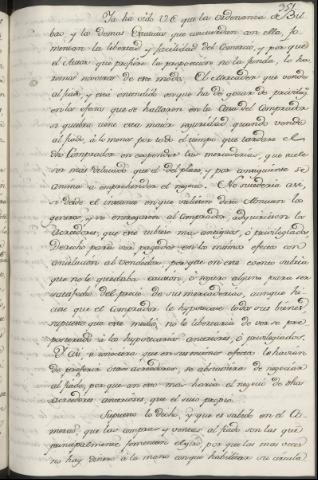 351
Ya ha oído V.E. que la Ordenanza de Bil-
bao, y las Demas Criticas que concuerdan con ella, fo-
mentan la libertad y facilidad del Comercio, y por qué
el Autor que prefiere la proporcion no la funda, lo ha-
remos nosotros de este modo. El Mercader que vende
al fiado, y está entendido en que ha de gozar de privilegio
en los efectos que se hallaren en la Casa del Comprador
si quiebra tiene esta maior seguridad quando vende
al fiado, á lo menos por todo el tiempo que tardare el
Comprador en expender las mercadurias, que suele
ser mas dilatado que el del plazo, y por consiguiente se
anima á emprehender el negocio. No sucederia asi,
si desde el instante en que saliesen de su Almacen los
generos, y se entregasen al Comprador, adquiriesen los
Acredores, que este tubiese mas antiguos, ó privilegiados
Derecho para ser pagados en los mismos efectos con
antelacion al vendedor, porque en este evento sabria
que no le quedaba caucion, ó seguro alguno para ser
satisfecho del precio de sus mercadurias, aunque hi-
ciese que el Comprador le hypotecase todos sus bienes,
supuesto que este medio, no le libertaria de verse pre-
posterado á los hypotecarios anteriores, ó privilegiados.
Y asi, si conociera que en sus mismos efectos le havian
de preferir otros acreedores, se abstendria de negociar
al fiado, por que en eso mas haria el negocio de otros
Acredores anteriores, que el suio propio.
Supuesto lo dicho, y que es sabido en el Co-
mercio, que las compras y ventas al fiado son las que
principalmente fomentan el giro, por que las mas veces
no hay dinero á la mano conque habilitar su circula